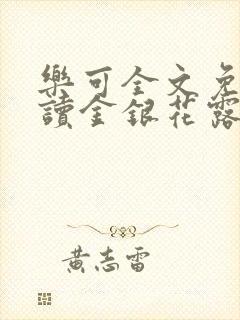 樂可全文免
讀金銀花露
黃志雷